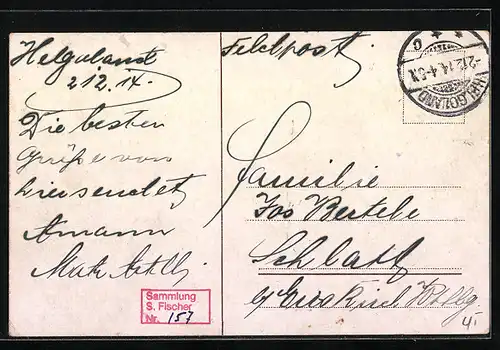 Helgoland
2 12. 14.
Die besten
Grüße von
hier sendet
Amann
Feldpost.
HELGOLAND
-2.12.14.4-5N
C
Familie
Jos Bertele
Schlatt
Sammlung
S. Fischer
Nr. 157